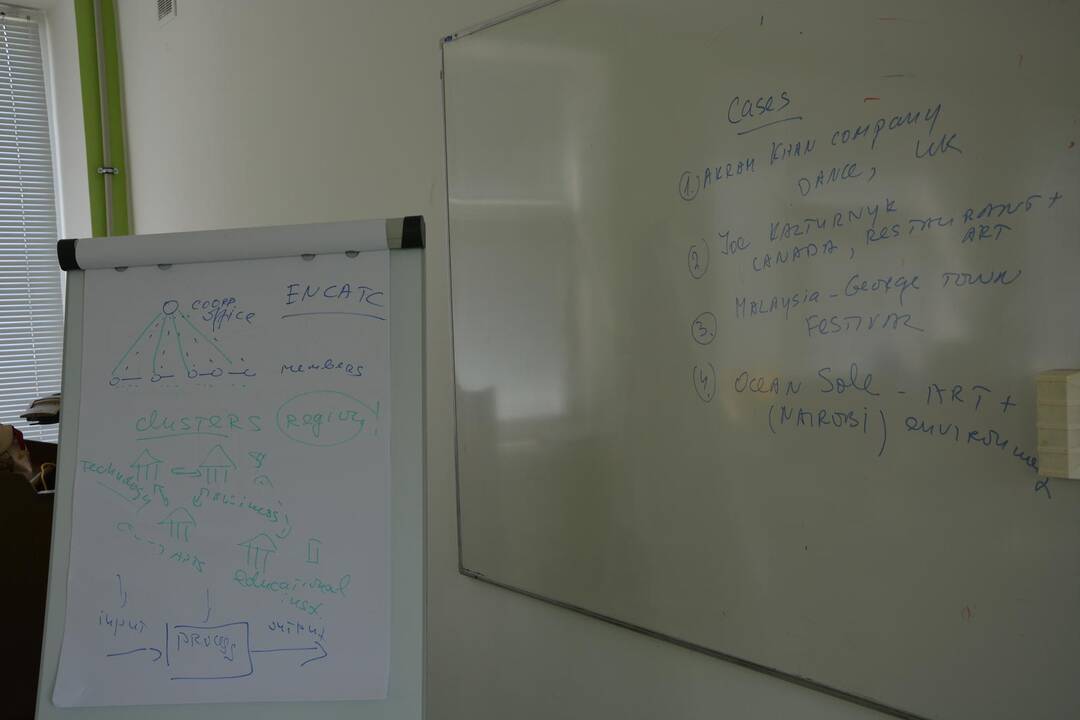 ENCATC
office
members
clusters
region!
Technology
business
Arts
educational
inst
input
process
output
Cases
1. AKRAM KHAN COMPANY
DANCE, UK
2. Joe KAZTURNYK
CANADA, RESTAURANT +
ART
3. MALAYSIA - George TOWN
FESTIVAL
4. OCEAN Sole - ART +
(NAIROBI) environment